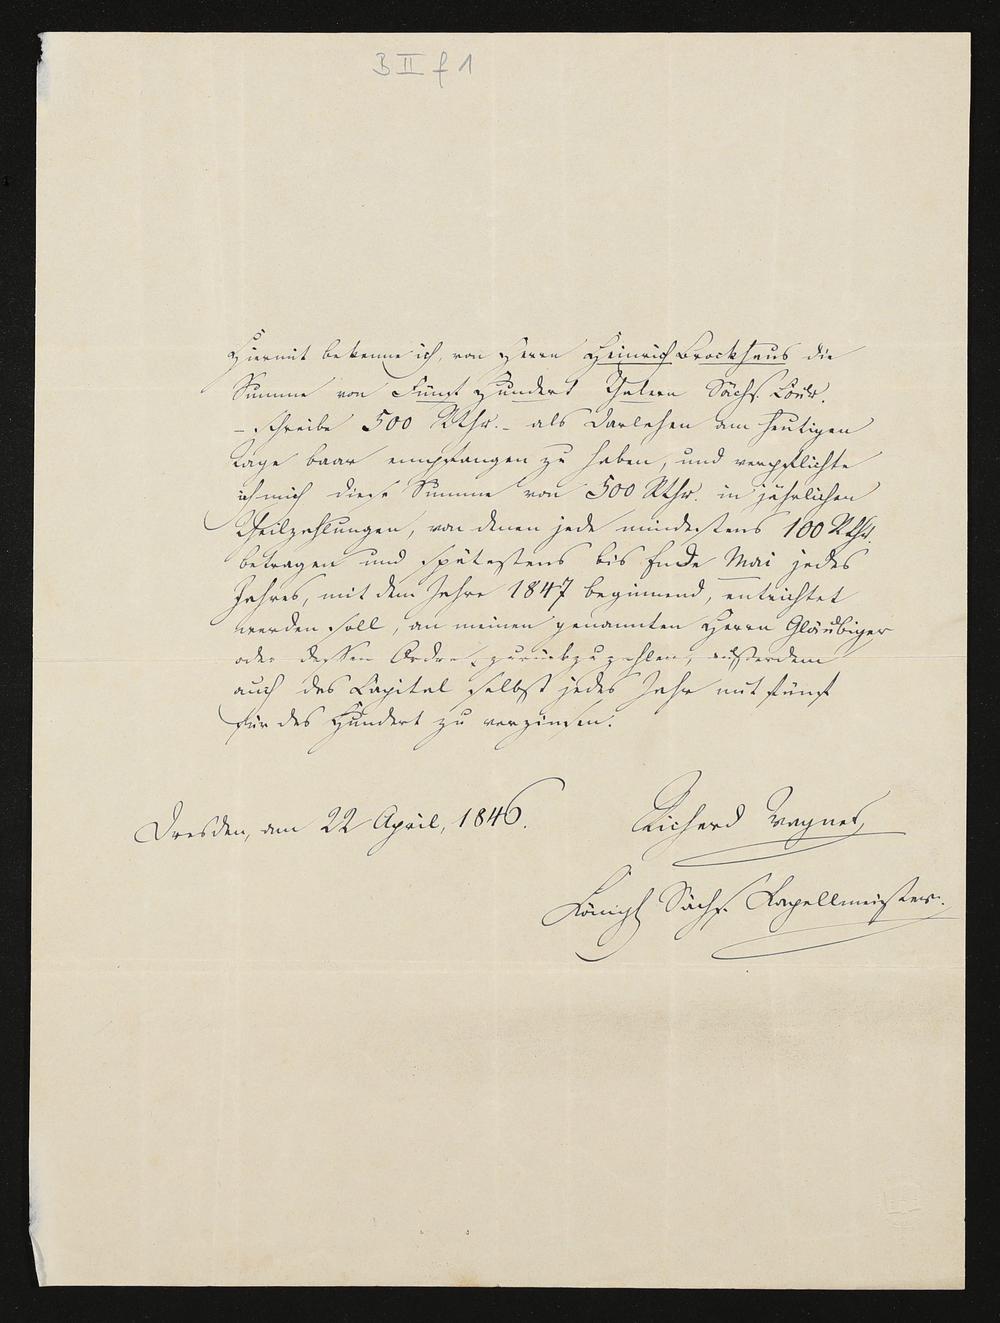 B II f 1
Hiermit bekenne ich, von Herrn Heinrich Brockhaus die
Summe von Fünf Hundert Thalern Sächs. Cour.
– schreibe 500 Rthr. – als Darlehen am heutigen
Tage baar empfangen zu haben, und verpflichte
ich mich diese Summe von 500 Rthr. in jährlichen
Theilzahlungen, von denen jede mindestens 100 Rthr.
betragen und spätestens bis Ende Mai jedes
Jahres, mit dem Jahre 1847 beginnend, entrichtet
werden soll, an meinen genannten Herrn Gläubiger
oder dessen Ordre zurückzuzahlen, außerdem
auch das Capital selbst jedes Jahr mit fünf
für das Hundert zu verzinsen.
Dresden, am 22 April, 1846.
Richard Wagner,
Königl Sächs. Kapellmeister.